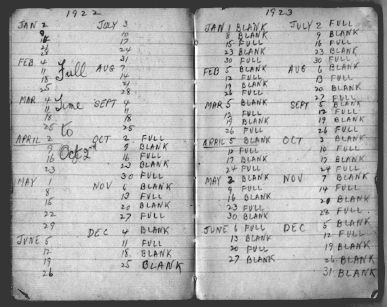 1922
JAN 2 JULY 3
9 10
16 17
24
31
FEB 4 Full AUG 7
11 14
18 21
25 28
MAR 4 June SEPT 4
11 11
18 18
25 to 25
APRIL 2 OCT 2 FULL
9 Oct 2nd 9 BLANK
16 16 FULL
23 23 BLANK
30 FULL
MAY 1 NOV 6 BLANK
8 13 FULL
15 20 BLANK
22 27 FULL
29 DEC 4 BLANK
JUNE 5 11 FULL
12 18 BLANK
19 25 BLANK
26
1923
JAN 1 BLANK JULY 2 FULL
8 BLANK 9 BLANK
15 FULL 16 FULL
23 BLANK 23 BLANK
30 FULL 30 FULL
FEB 5 BLANK AUG 6 BLANK
12 FULL 13 FULL
19 BLANK 20 BLANK
26 FULL 27 FULL
MAR 5 BLANK SEPT 5 BLANK
12 FULL 12 FULL
19 BLANK 19 BLANK
26 FULL 26 FULL
APRIL 5 BLANK OCT 3 BLANK
12 FULL 10 FULL
17 BLANK 17 BLANK
24 FULL 24 FULL
MAY 2 BLANK NOV 7 BLANK
9 FULL 14 FULL
16 BLANK BLANK
23 FULL 28 FULL
30 BLANK
JUNE 6 FULL DEC 5 BLANK
13 BLANK 12 FULL
20 FULL 19 BLANK
27 BLANK 26 BLANK
31 BLANK